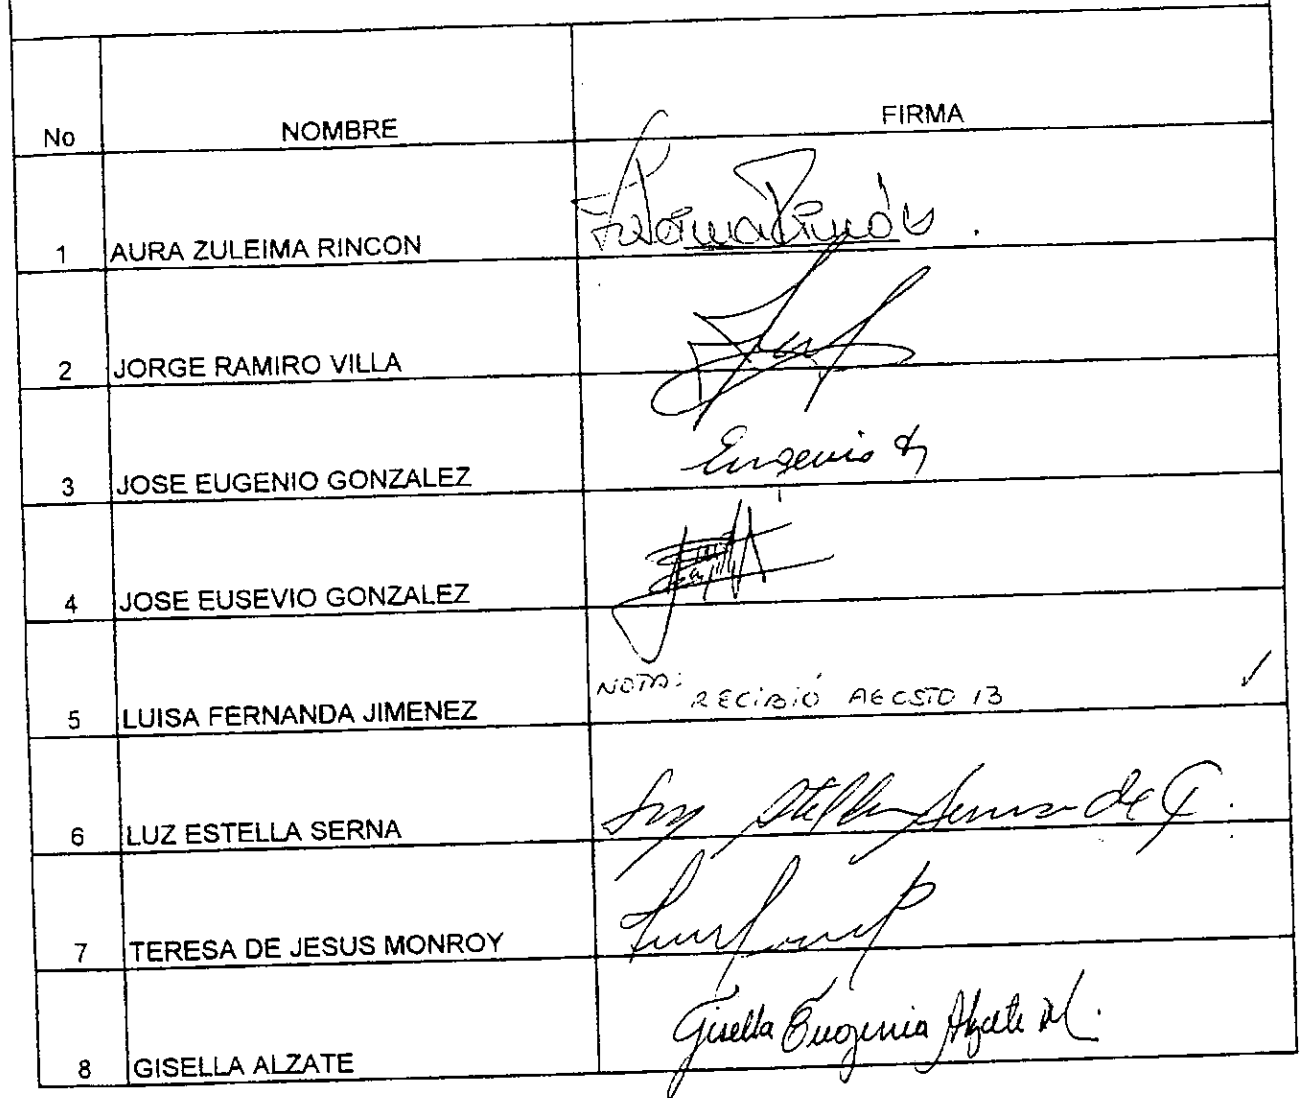 No NOMBRE FIRMA
1 AURA ZULEIMA RINCON Zuleima Rincón
2 JORGE RAMIRO VILLA
3 JOSE EUGENIO GONZALEZ Eugenio G
4 JOSE EUSEVIO GONZALEZ
5 LUISA FERNANDA JIMENEZ NOTA: RECIBIÓ AGOSTO 13 ✓
6 LUZ ESTELLA SERNA Luz Stella Serna de G.
7 TERESA DE JESUS MONROY
8 GISELLA ALZATE Gisella Eugenia Alzate M.